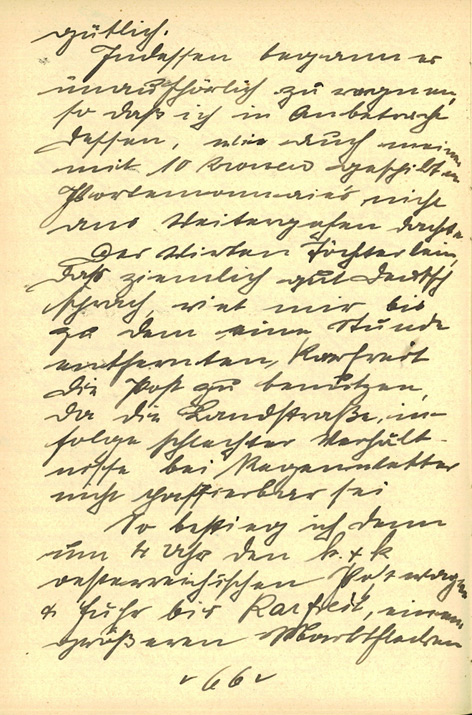 gütlich.
Indessen begann es
unaufhörlich zu regnen,
so daß ich in Anbetracht
dessen, wie auch meines
mit 10 Kronen gespickten
Portemonnaie's nicht
ans Weitergehen dachte.
Der Wirten Töchterlein,
daß ziemlich gut deutsch
sprach, riet mir bis
zu dem eine Stunde
entfernten, Karfreit
die Post zu benutzen,
da die Landstraße, in-
folge schlechter Verhält-
nisse bei Regenwetter
nicht passierbar sei
So bestieg ich denn
um 4 Uhr den k. + k
oesterreichischen Postwagen
& fuhr bis Karfreit, einem
größeren Marktflecken
66